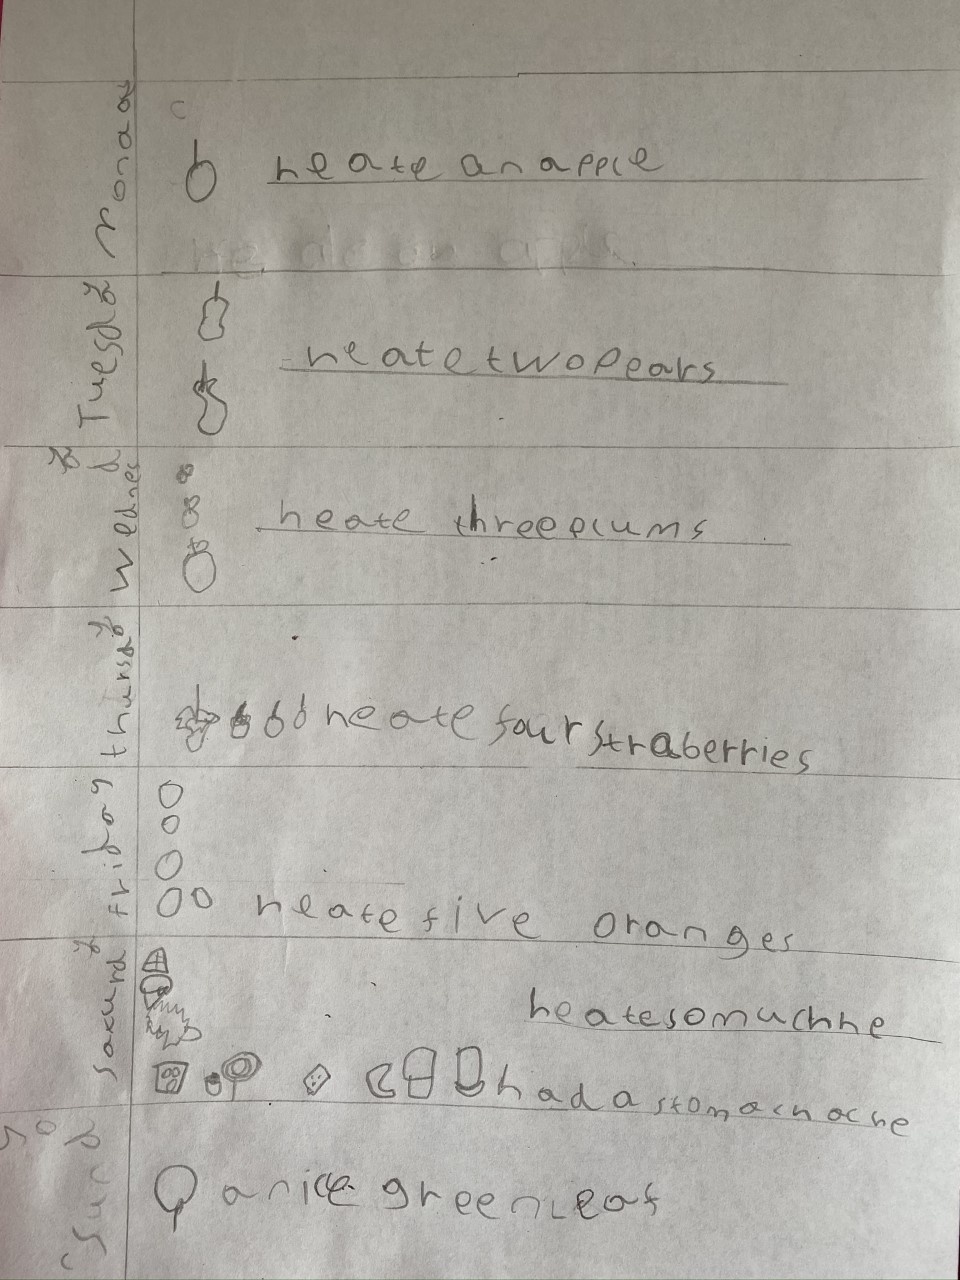 Monday
he ate an apple
Tuesday
he ate two pears
wednesday
he ate three plums
thursday
he ate four straberries
friday
he ate five oranges
he ate so much he
had a stomach ache
Sunday
a nice green leaf